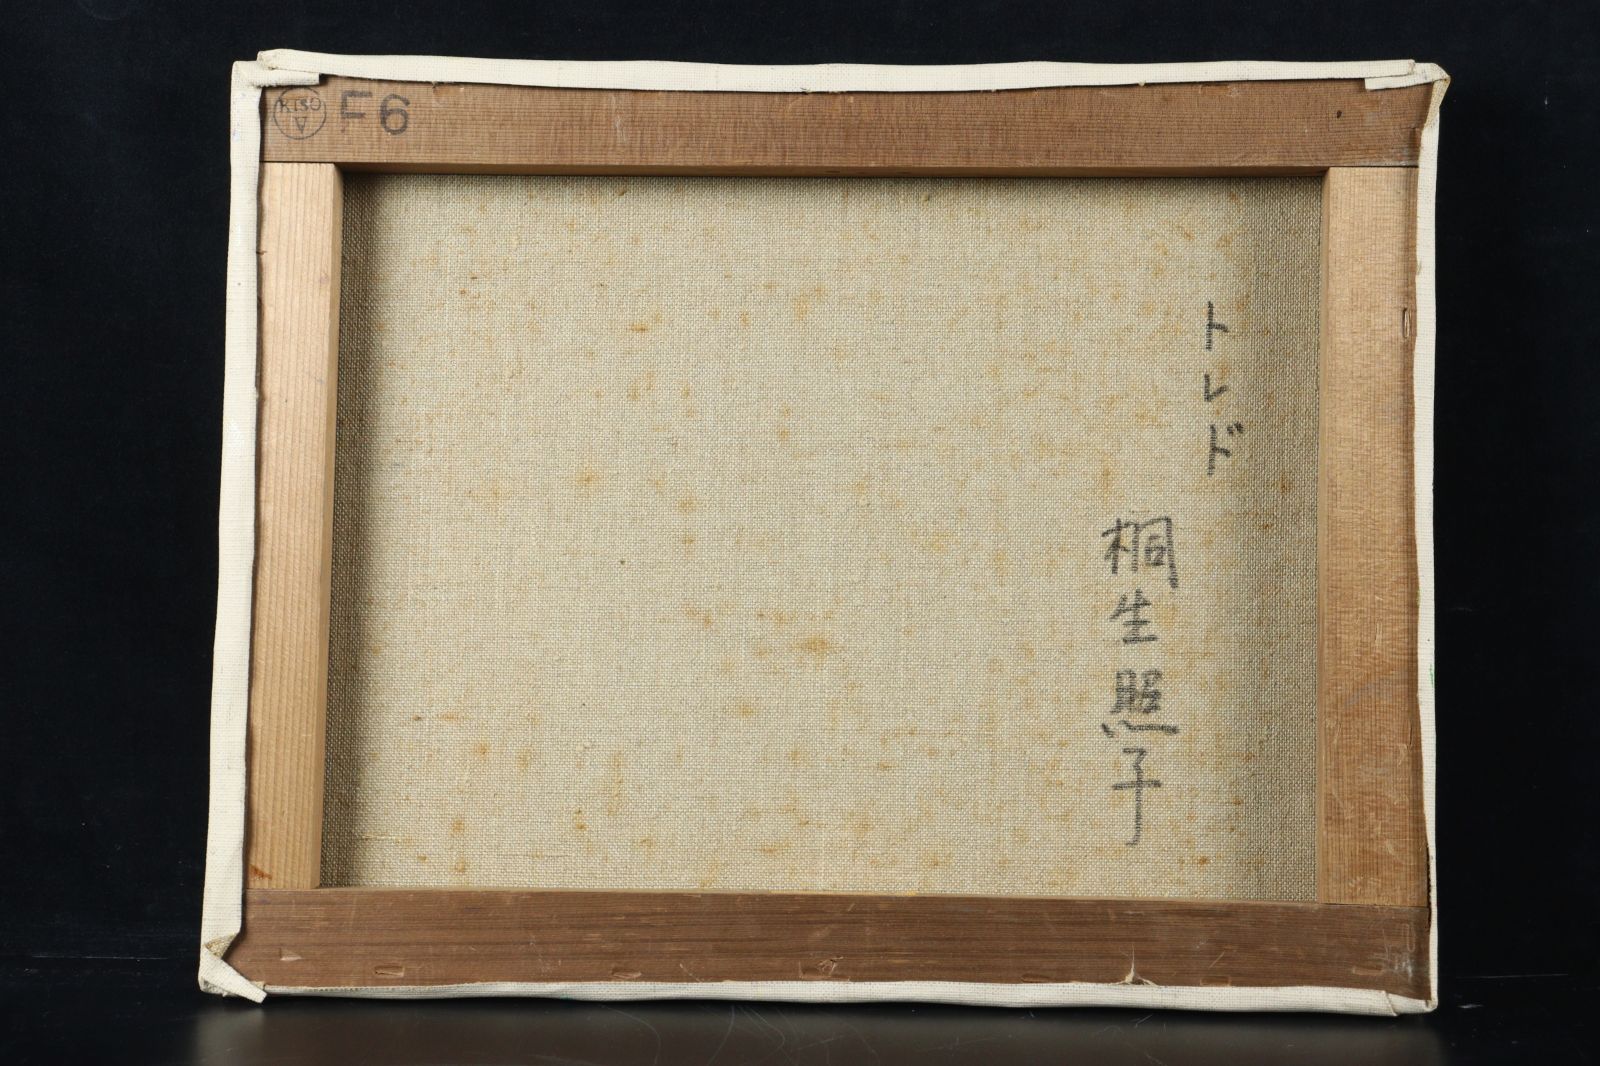 KISO
A
F6
トレド
桐生照子